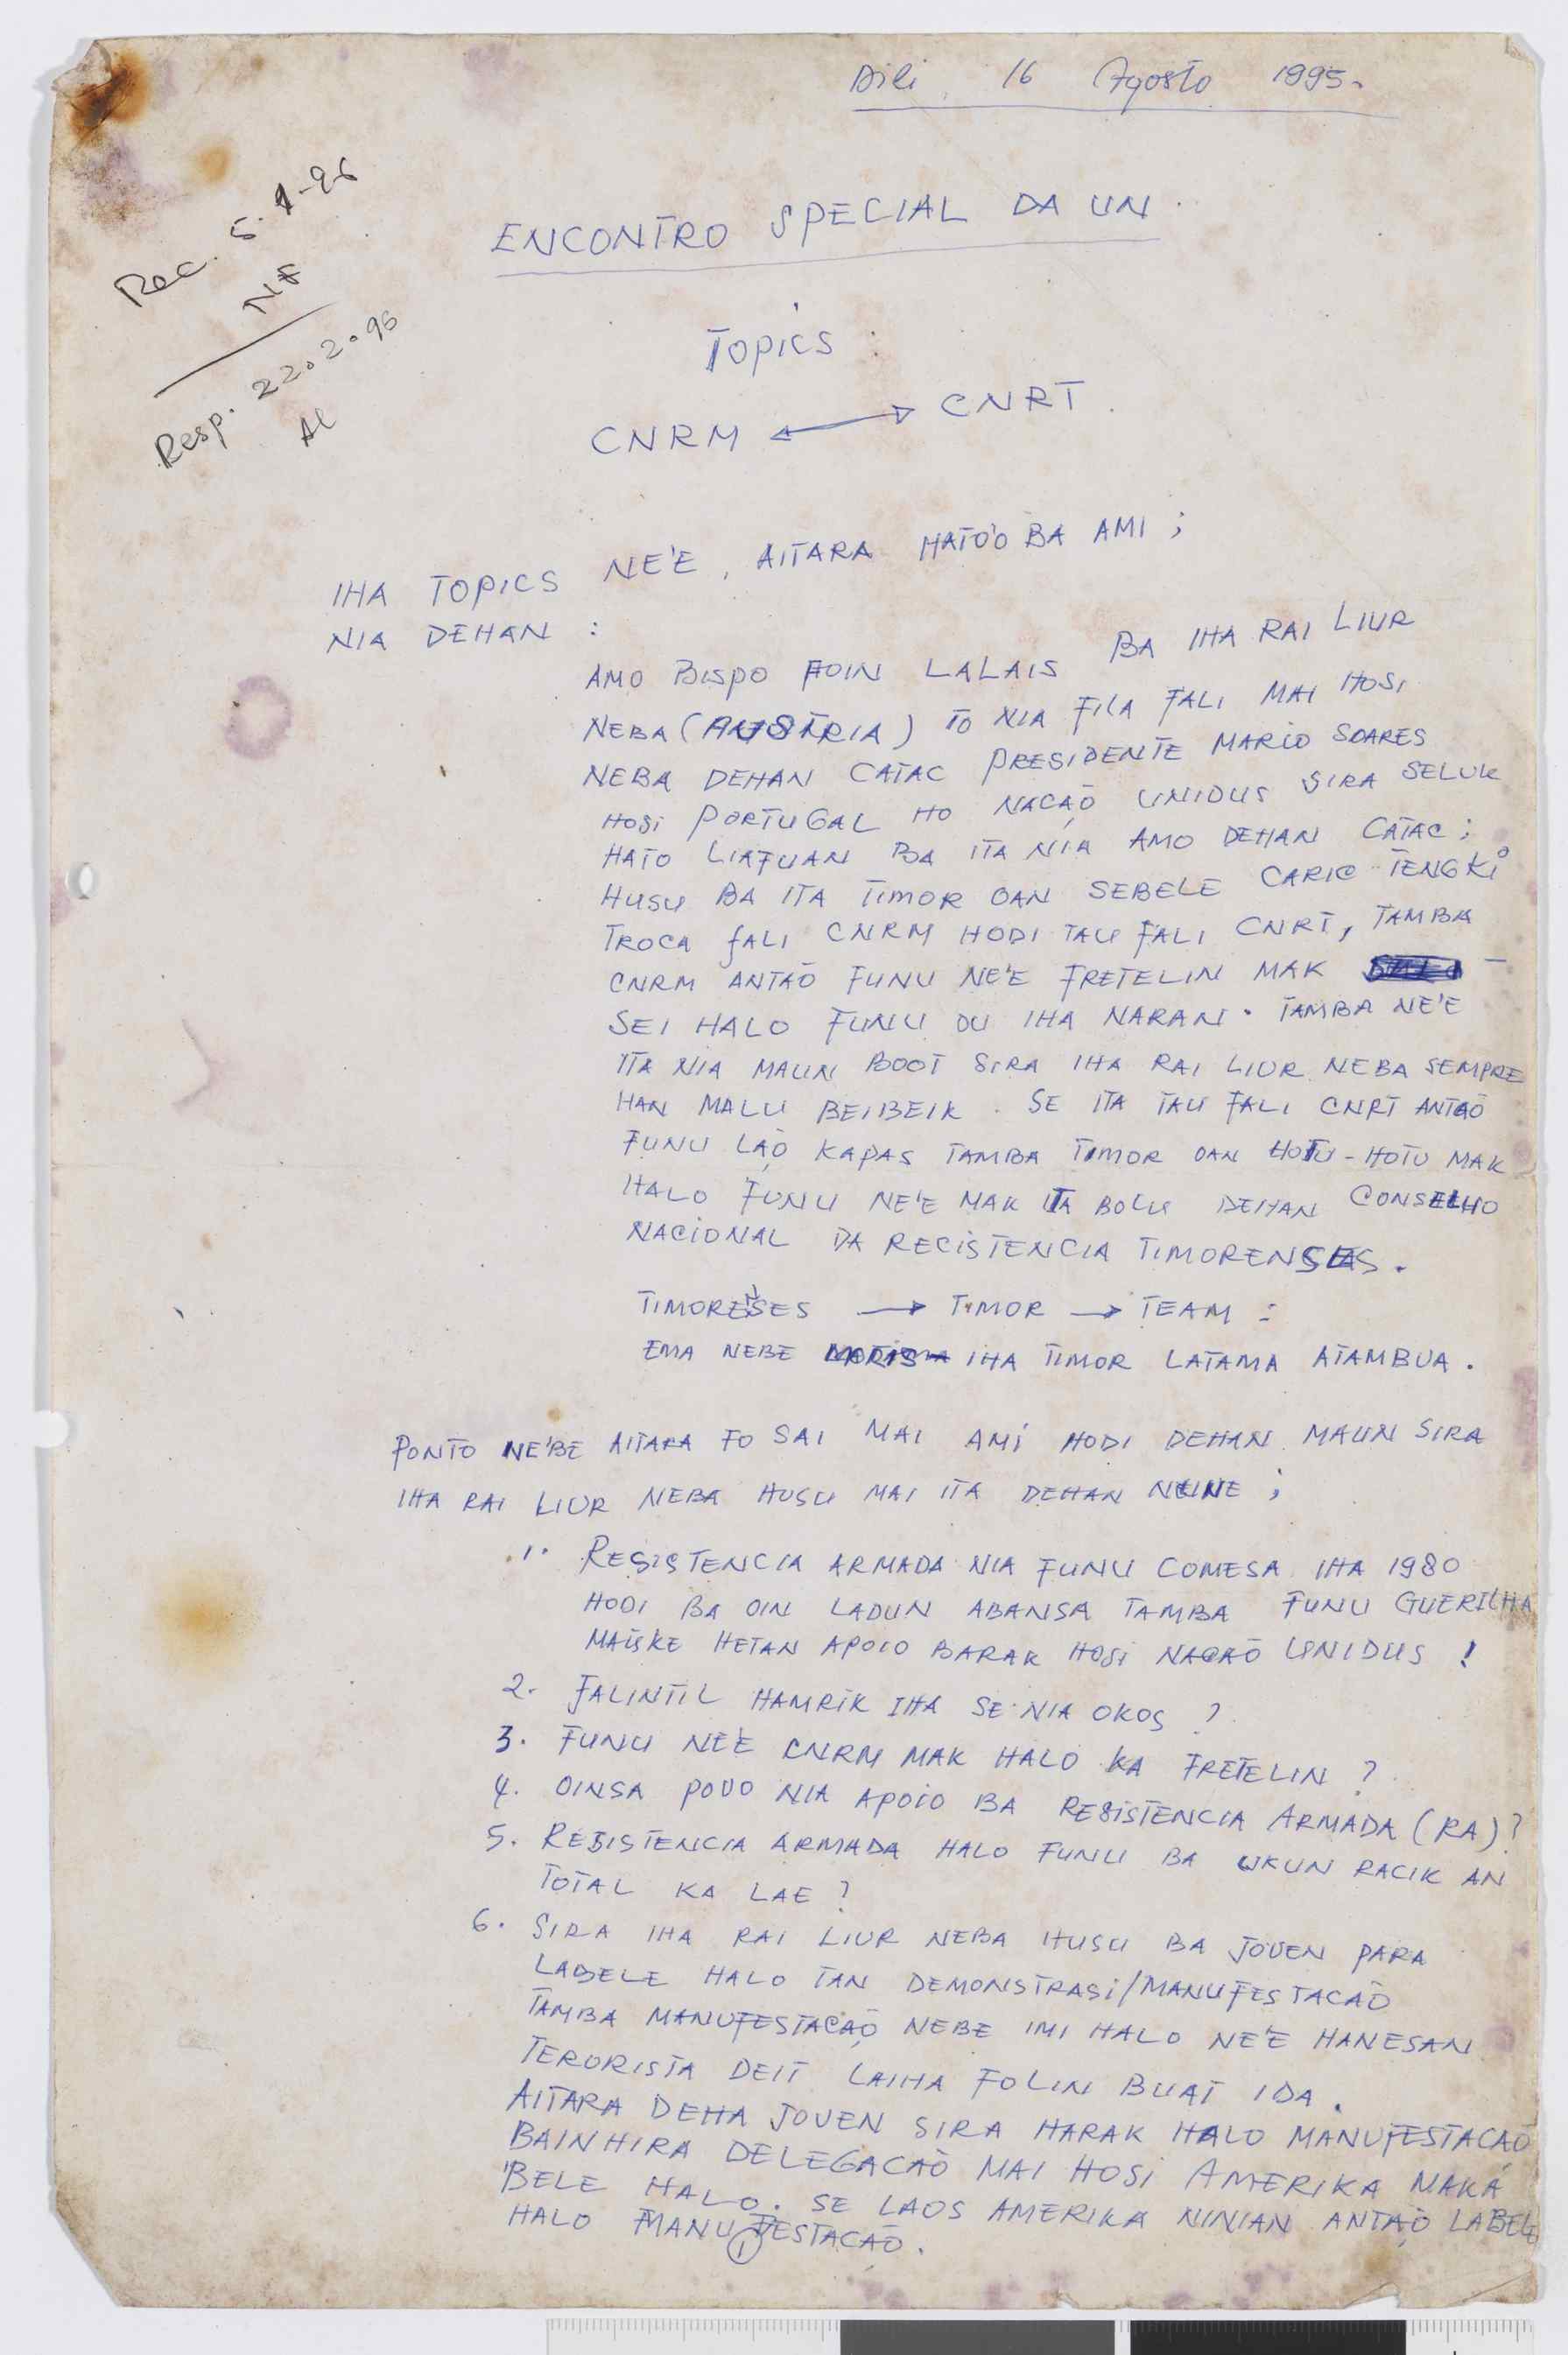 Dili, 16 Agosto 1995.
Rec. 5.1-96
NF
Resp. 22.2.96
Al
ENCONTRO SPECIAL DA UN.
TOPICS :
CNRM ↔ CNRT.
IHA TOPICS NE'E, AITARA HATO'O BA AMI ;
NIA DEHAN :
AMO BISPO FOIN LALAIS BA IHA RAI LIUR
NEBA (AUSTRIA) TO NIA FILA FALI MAI HOSI
NEBA DEHAN CATAC PRESIDENTE MARIO SOARES
HOSI PORTUGAL HO NAÇAÕ UNIDUS SIRA SELUK
HATO LIAFUAN BA ITA NIA AMO DEHAN CATAC ;
HUSU BA ITA TIMOR OAN SEBELE CARIC TENGKI
TROCA FALI CNRM HODI TAU FALI CNRT, TAMBA
CNRM ANTAÕ FUNU NE'E FRETELIN MAK –
SEI HALO FUNU DU IHA NARAN. TAMBA NE'E
ITA NIA MAUN BOOT SIRA IHA RAI LIUR NEBA SEMPRE
HAN MALU BEIBEIK. SE ITA TAU FALI CNRT ANTAÕ
FUNU LAÕ KAPAS TAMBA TIMOR OAN HOTU-HOTU MAK
HALO FUNU NE'E MAK ITA BOLU DEHAN CONSELHO
NACIONAL DA RECISTENCIA TIMORENSES.
TIMORENSES → TIMOR → TEAM :
EMA NEBE MORIS IHA TIMOR LATAMA ATAMBUA.
PONTO NE'BE AITARA FO SAI MAI AMI HODI DEHAN MAUN SIRA
IHA RAI LIUR NEBA HUSU MAI ITA DEHAN NUNE ;
1. RESISTENCIA ARMADA NIA FUNU COMESA IHA 1980
HODI BA OIN LADUN ABANSA TAMBA FUNU GUERILHA
MAISKE HETAN APOIO BARAK HOSI NAÇAÕ UNIDUS !
2. FALINTIL HAMRIK IHA SE NIA OKOS ?
3. FUNU NE'E CNRM MAK HALO KA FRETELIN ?
4. OINSA POVO NIA APOIO BA RESISTENCIA ARMADA (RA)?
5. RESISTENCIA ARMADA HALO FUNU BA UKUN RACIK AN
TOTAL KA LAE ?
6. SIRA IHA RAI LIUR NEBA HUSU BA JOVEN PARA
LABELE HALO TAN DEMONSTRASI/MANUFESTACAÕ
TAMBA MANUFESTAÇAÕ NEBE IMI HALO NE'E HANESAN
TERORISTA DEIT LAIHA FOLIN BUAT IDA.
AITARA DEHA JOVEN SIRA HARAK HALO MANUFESTACAÕ
BAINHIRA DELEGACAÕ MAI HOSI AMERIKA NAKA
BELE HALO. SE LAOS AMERIKA NINIAN ANTAÕ LABELE
HALO MANUFESTACAÕ.
1